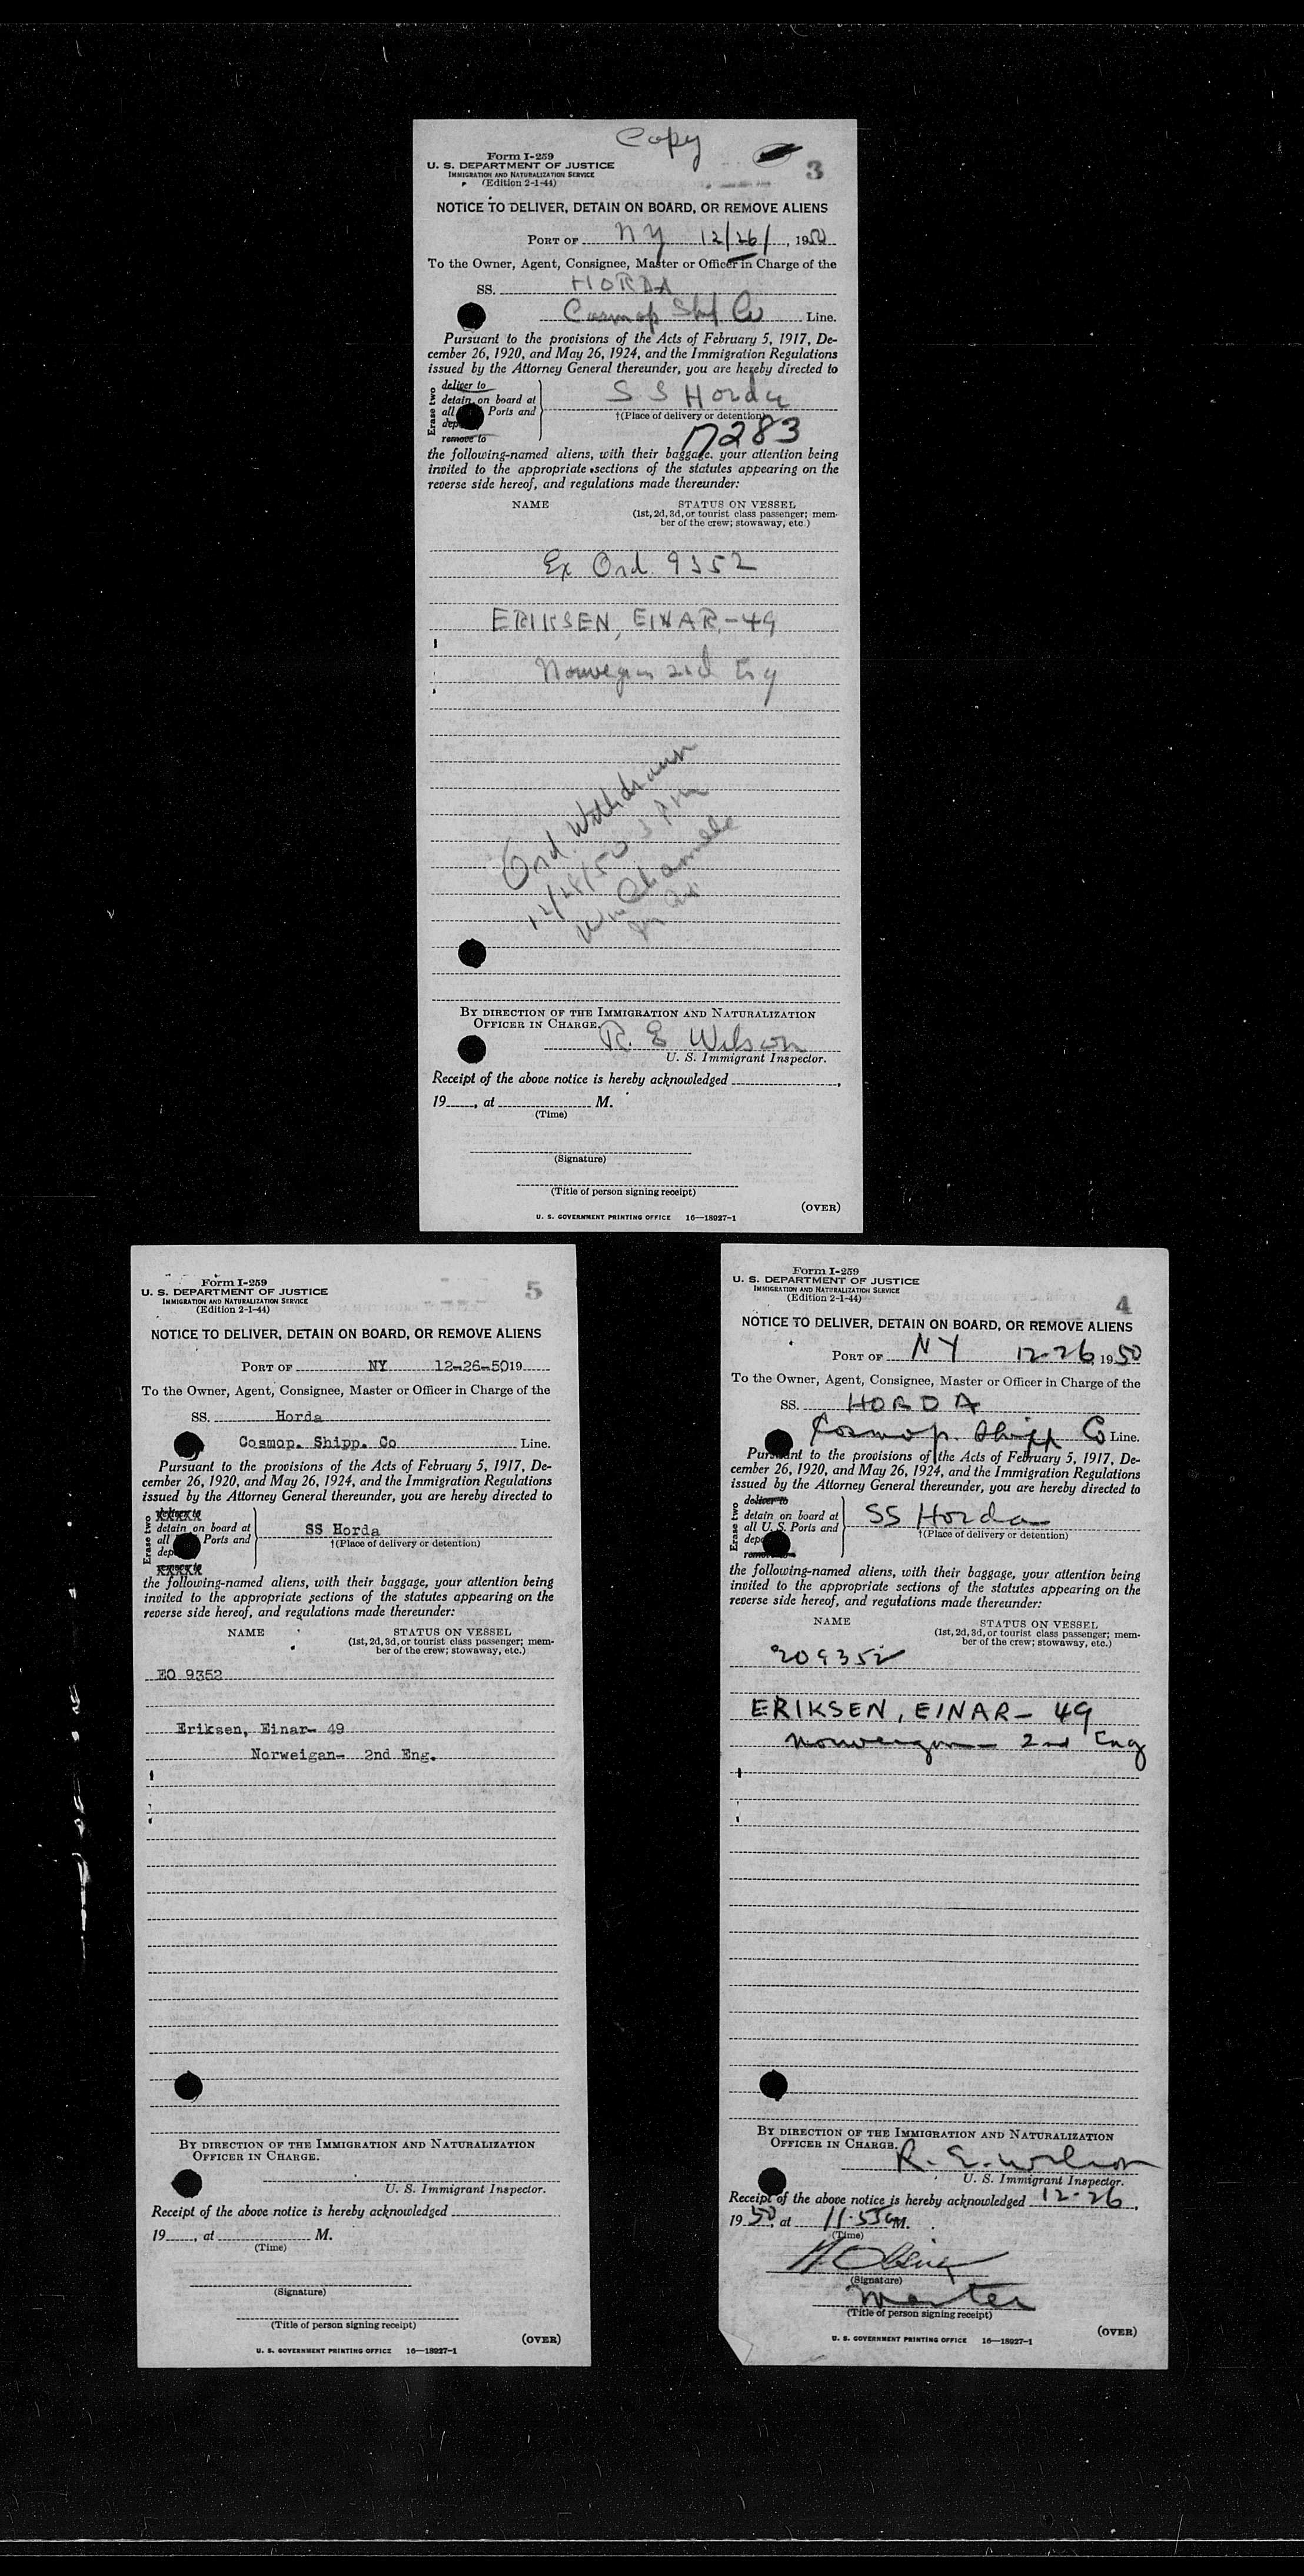 Copy
3
Form I-259
U. S. DEPARTMENT OF JUSTICE
IMMIGRATION AND NATURALIZATION SERVICE
(Edition 2-1-44)
NOTICE TO DELIVER, DETAIN ON BOARD, OR REMOVE ALIENS
PORT OF NY 12/26/, 1950
To the Owner, Agent, Consignee, Master or Officer in Charge of the
SS. HORDA
Cosmop Shp Co Line.
Pursuant to the provisions of the Acts of February 5, 1917, De-
cember 26, 1920, and May 26, 1924, and the Immigration Regulations
issued by the Attorney General thereunder, you are hereby directed to
Erase two
deliver to
detain on board at
all Ports and
remove to
S S Horda
†(Place of delivery or detention)
17283
the following-named aliens, with their baggage, your attention being
invited to the appropriate sections of the statutes appearing on the
reverse side hereof, and regulations made thereunder:
NAME STATUS ON VESSEL
(1st, 2d, 3d, or tourist class passenger; mem-
ber of the crew; stowaway, etc.)
Ex Ord. 9352
ERIKSEN, EINAR,-49
Norwegian 2nd Eng
Ord. Withdrawn
12/28/50 3 PM
By DIRECTION OF THE IMMIGRATION AND NATURALIZATION
OFFICER IN CHARGE.
R. E Wilson
U. S. Immigrant Inspector.
Receipt of the above notice is hereby acknowledged ,
19 , at M.
(Time)
(Signature)
(Title of person signing receipt)
(OVER)
U. S. GOVERNMENT PRINTING OFFICE 16—18927-1
5
Form I-259
U. S. DEPARTMENT OF JUSTICE
IMMIGRATION AND NATURALIZATION SERVICE
(Edition 2-1-44)
NOTICE TO DELIVER, DETAIN ON BOARD, OR REMOVE ALIENS
PORT OF NY 12-26-5019
To the Owner, Agent, Consignee, Master or Officer in Charge of the
SS. Horda
Cosmop. Shipp. Co Line.
Pursuant to the provisions of the Acts of February 5, 1917, De-
cember 26, 1920, and May 26, 1924, and the Immigration Regulations
issued by the Attorney General thereunder, you are hereby directed to
Erase two
deliver to
detain on board at
all Ports and
remove to
SS Horda
†(Place of delivery or detention)
the following-named aliens, with their baggage, your attention being
invited to the appropriate sections of the statutes appearing on the
reverse side hereof, and regulations made thereunder:
NAME STATUS ON VESSEL
(1st, 2d, 3d, or tourist class passenger; mem-
ber of the crew; stowaway, etc.)
EO 9352
Eriksen, Einar- 49
Norweigan- 2nd Eng.
By DIRECTION OF THE IMMIGRATION AND NATURALIZATION
OFFICER IN CHARGE.
U. S. Immigrant Inspector.
Receipt of the above notice is hereby acknowledged
19 , at M.
(Time)
(Signature)
(Title of person signing receipt)
(OVER)
U. S. GOVERNMENT PRINTING OFFICE 16—18927-1
4
Form I-259
U. S. DEPARTMENT OF JUSTICE
IMMIGRATION AND NATURALIZATION SERVICE
(Edition 2-1-44)
NOTICE TO DELIVER, DETAIN ON BOARD, OR REMOVE ALIENS
PORT OF NY 12-26, 1950
To the Owner, Agent, Consignee, Master or Officer in Charge of the
SS. HORDA
Cosmop. Shipp Co Line.
Pursuant to the provisions of the Acts of February 5, 1917, De-
cember 26, 1920, and May 26, 1924, and the Immigration Regulations
issued by the Attorney General thereunder, you are hereby directed to
Erase two
deliver to
detain on board at
all U. S. Ports and
remove to
SS Horda
†(Place of delivery or detention)
the following-named aliens, with their baggage, your attention being
invited to the appropriate sections of the statutes appearing on the
reverse side hereof, and regulations made thereunder:
NAME STATUS ON VESSEL
(1st, 2d, 3d, or tourist class passenger; mem-
ber of the crew; stowaway, etc.)
ERIKSEN, EINAR- 49
Norweigan- 2nd Eng
By DIRECTION OF THE IMMIGRATION AND NATURALIZATION
OFFICER IN CHARGE.
R. E. Wilson
U. S. Immigrant Inspector.
Receipt of the above notice is hereby acknowledged 12-26,
1950, at 11.55 a M.
(Time)
(Signature)
Master
(Title of person signing receipt)
(OVER)
U. S. GOVERNMENT PRINTING OFFICE 16—18927-1